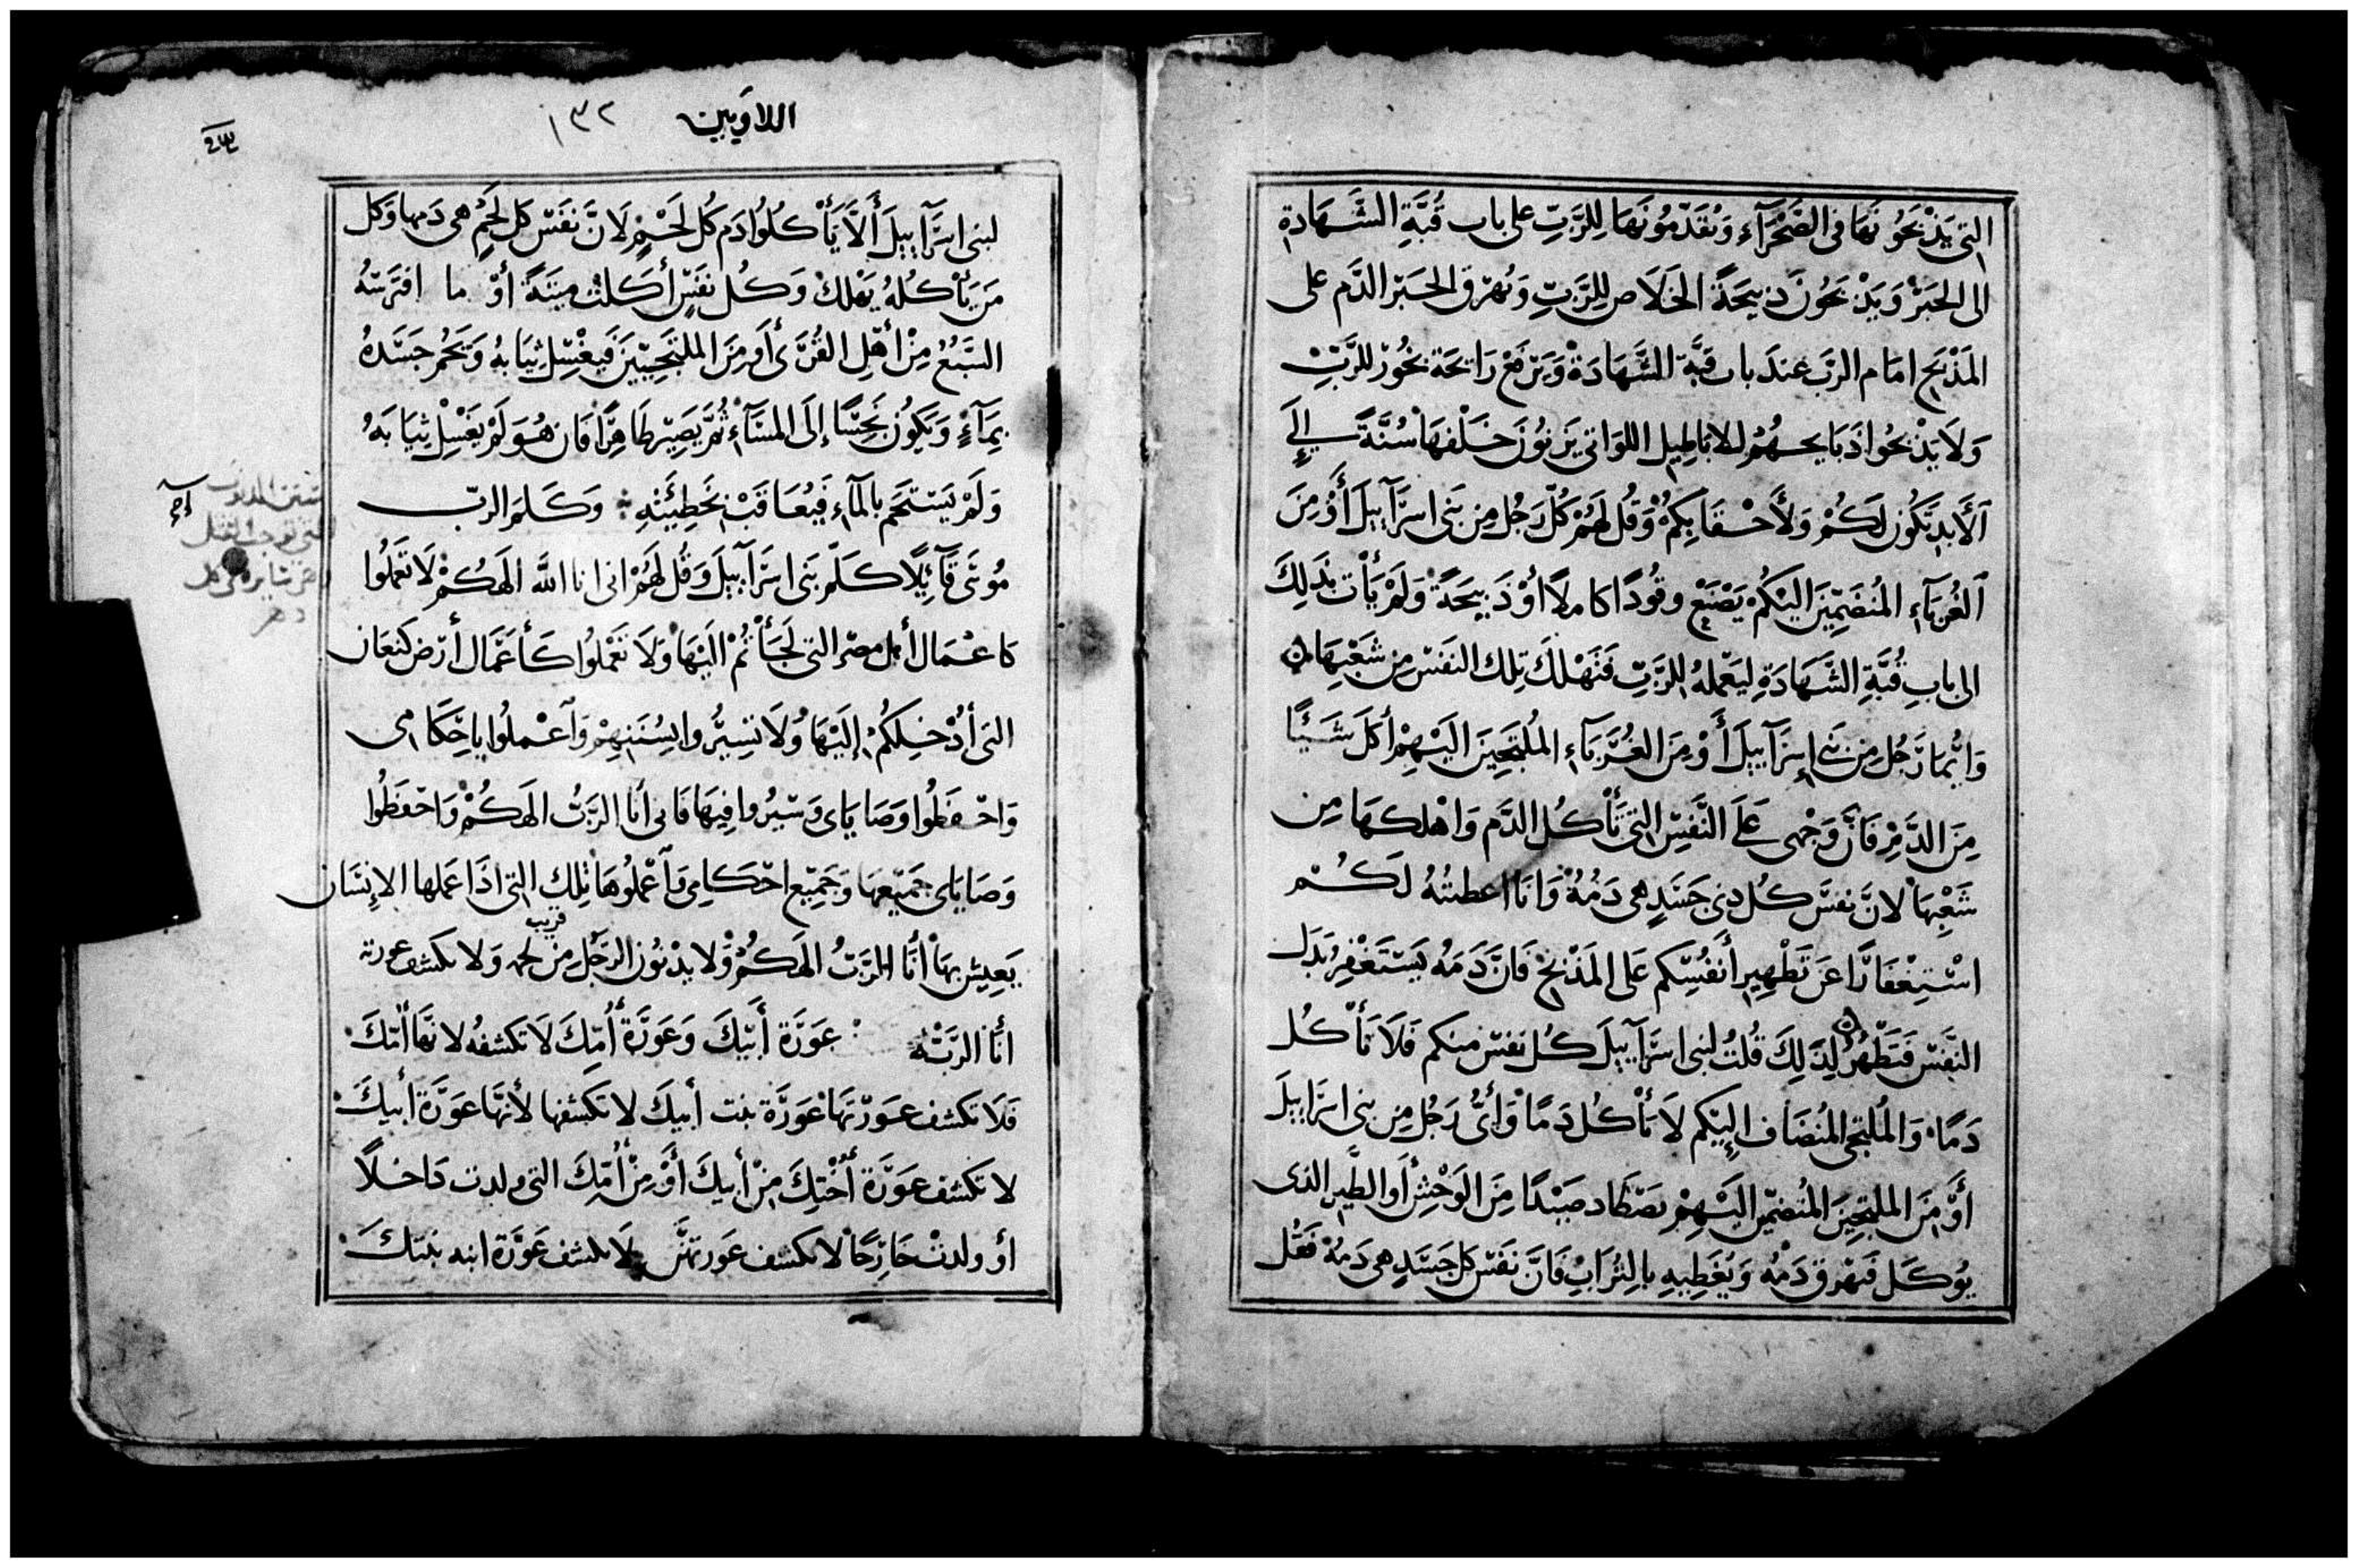 التى يَذْبَحُونَهَا فى الصَّحْرَآءِ وَيُقَدِّمُونَهَا لِلرَّبِّ على باب قُبَّةِ الشَّهَادة
الى الحَبْرْ وَيَذْبَحُونَ ذبيحَةً الخَلَاص لِلرَّبِّ وَيُهْرق الحَبْر الدَّم على
المَذْبَحِ امَام الرب عندَ باب قبَّة الشَّهَادَةْ وَيَرْفَعْ رَايحَة بَخُوْر للرَّبِّ
وَلَا يَذْبحُوا ذَبَايحهُمْ للاباطِيل اللوَاتى يَزنونَ خَلْفهَا سُنَّةً الى
آلأَبدِ تَكُون لَكُمْ وَلأَحْقَابِكمُ وَقُل لَهُمْ كُلّ رَجُل مِن بَنى اسرَآييلَ أَوْ مِنَ
آلغُرَبَآءِ المُنضَمِّينَ الَيْكُمْ يَصْنَعْ وقُودًا كاملاً اوْ ذَبيحَةً وَلَمْ يَأْت بذَلِكَ
الى بابِ قُبَّةِ الشَّهَادَةِ ليَعْملهُ للرَّبِّ فَتَهْلكَ تِلك النفس مِن شَعْبِهَا
وَايُّمَا رَجُل مِن بَنى إسرَآييلَ أَوْ مِنَ الغُرَبَآءِ المُلتَجِينَ الَيْهِمْ أَكَلَ شَيئًا
مِنَ الدَّمِ فَانَّ وَجْهى عَلَى النَّفْسِ التى تَأْكُل الدَّم وَاهْلكهَا مِن
شَعْبِهَا لانَّ نفسَ كُل ذى جَسَدٍ هى دَمُهُ وَانَا اعطيتُهُ لَكُمْ
اسْتِغْفَارًا عَن تَطْهِيرِ أَنفُسِكم عَلى المَذْبَحْ فَانَّ دَمَهُ يَسْتَغْفِرُ بَدَل
النَّفْس فَتَطْهُرُ لِذَلِكَ قُلتُ لبنى اسرَآييلَ كُل نَفس منكم فَلَا تَأْكُل
دَمًا وَالمُلتجى المُضَاف إِلَيْكم لاَ يَأْكُل دَمًا وَأَىُّ رَجُل مِن بنى اسرَاييلَ
أَوْ مِنَ الملتجِينَ المُنضمِّين الَيْهِمْ يَصْطَاد صَيْدًا مِنَ الوَحْشِ أَوالطَّيرِ الذى
يُوكَل فَيهْرق دَمهُ وَيُغَطِّيهِ بالتُرَابْ فَانَّ نَفس كل جَسَدٍ هى دَمهُ فَقُل
اللاويين ١٣٢
لبنى اسرَآييلَ أَلاَّ يَأْكُلُوا دَم كُل لَحْمٍ لاَنَّ نَفس كل لحْمٍ هى دَمها وَكل
مَن يَأْكلهُ يَهْلكْ وَكُل نفسٍ أَكَلتْ ميتَةً أَوْ ما افتَرَسهُ
السَبُعْ مِنْ أَهْلِ القُرَى أَو مِنَ الملتجيينَ فيغْسِل ثِيَابهُ وَيَحُم جَسَدهُ
بمَآءٍ وَيَكُون نَجسًا إلَى المسَآءِ ثُمَّ يَصِير طَاهِرًا فَان هُوَ لَمْ يَغْسِلْ ثِيَابَهُ
وَلَمْ يَسْتَحم بالمآءِ فَيُعَاقَبْ بخَطِيئَتِهِ وَكَلمَ الربّ
مُوسَى قَآئِلًا كَلّم بَنى اسرَآييلَ وَقُل لَهُمْ انى انا اللَّه الَهكُمْ لَا تَعْمَلُوا
كاعْمَال أَهل مصْر التى لَجَأْتُمْ الَيْهَا وَلَا تَعْمَلُوا كَأَعْمَال أَرْض كنعَان
التى أُدْخِلكُمْ إلَيْهَا وَلَا تَسِيرُوا بِسُنَنِهِمْ وَآعْملُوا باحْكَامى
وَاحْفظُوا وَصَايَاى وَسيرُوا فِيهَا فَانى أَنا الرَبُّ الَهكُمْ وَاحْفَظُوا
وَصَايَاى جَميْعهَا وَجَميْع احْكَامى وَآعْملُوهَا تِلك التى اذَا عَملها الإِنسَان
يَعِيش بِهَا أَنَا الرَّبُّ الَهكُمْ وَلا يدْنُون الرَّجُل مِنْ قريب لحمه وَلا يكشف عورته
أَنَا الرَّبْ عَوْرَة أَبيْكَ وَعَوْرَة أُمّكَ لَا تَكشفهُ لانَّهَا أُمّكَ
فَلَا تكشف عوْرتهَا عَوْرَة بنت أبيكَ لا تكشفها لأَنَّها عَوْرَة أَبيكَ
لا تكشف عَوْرَة أُخْتِكَ مِنْ أَبيكَ أَوْ مِنْ أُمّكَ التى ولدت دَاخلاً
أو ولدتْ خَارجًا لا تكشف عَورتهنَّ لا تكشف عَوْرَة ابنه بنتكَ